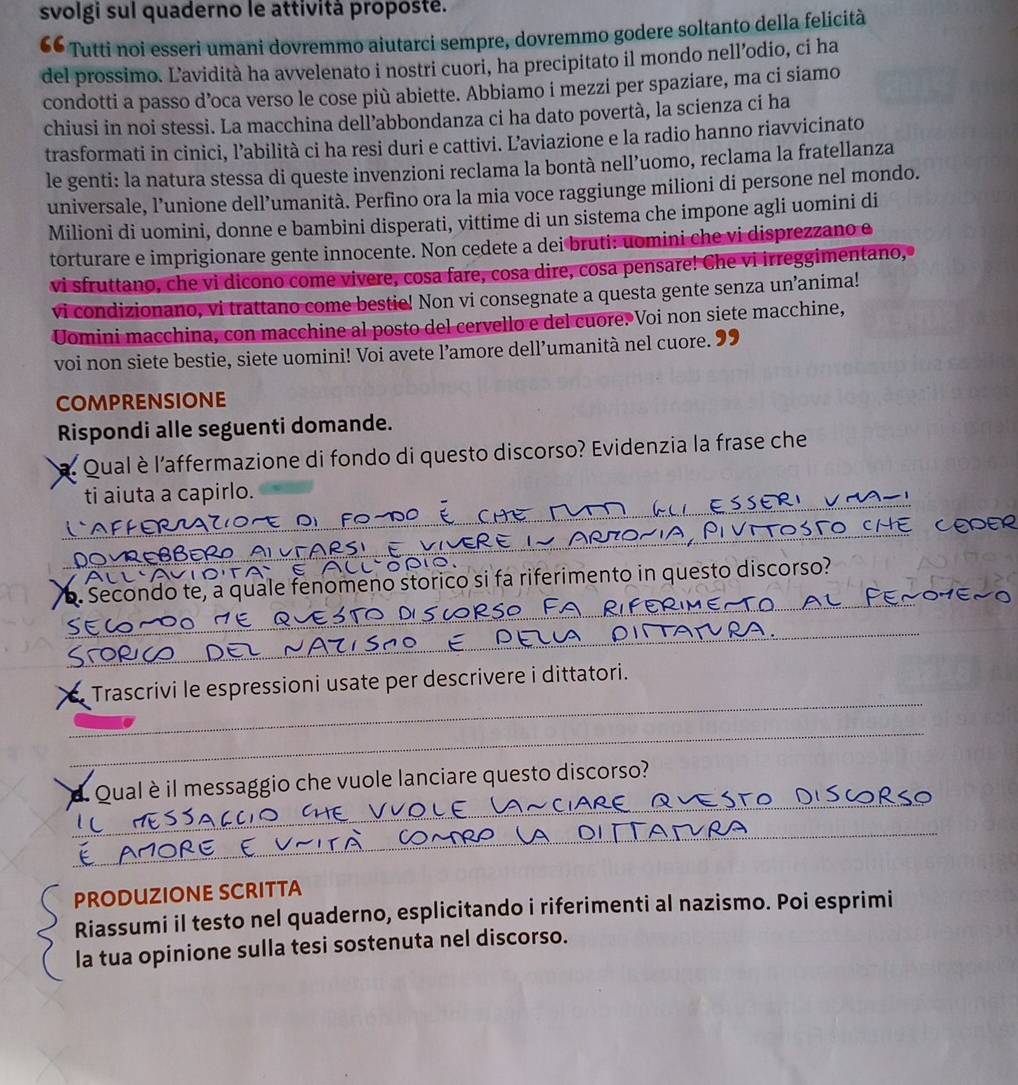 svolgi sul quaderno le attività proposte.
“ Tutti noi esseri umani dovremmo aiutarci sempre, dovremmo godere soltanto della felicità
del prossimo. L’avidità ha avvelenato i nostri cuori, ha precipitato il mondo nell’odio, ci ha
condotti a passo d’oca verso le cose più abiette. Abbiamo i mezzi per spaziare, ma ci siamo
chiusi in noi stessi. La macchina dell’abbondanza ci ha dato povertà, la scienza ci ha
trasformati in cinici, l’abilità ci ha resi duri e cattivi. L’aviazione e la radio hanno riavvicinato
le genti: la natura stessa di queste invenzioni reclama la bontà nell’uomo, reclama la fratellanza
universale, l’unione dell’umanità. Perfino ora la mia voce raggiunge milioni di persone nel mondo.
Milioni di uomini, donne e bambini disperati, vittime di un sistema che impone agli uomini di
torturare e imprigionare gente innocente. Non cedete a dei bruti: uomini che vi disprezzano e
vi sfruttano, che vi dicono come vivere, cosa fare, cosa dire, cosa pensare! Che vi irreggimentano,
vi condizionano, vi trattano come bestie! Non vi consegnate a questa gente senza un’anima!
Uomini macchina, con macchine al posto del cervello e del cuore. Voi non siete macchine,
voi non siete bestie, siete uomini! Voi avete l’amore dell’umanità nel cuore. ”
COMPRENSIONE
Rispondi alle seguenti domande.
a. Qual è l’affermazione di fondo di questo discorso? Evidenzia la frase che
ti aiuta a capirlo.
L'AFFERMAZIONE DI FONDO È CHE TUTTI GLI ESSERI UMANI
DOVREBBERO AIUTARSI E VIVERE IN ARMONIA, PIUTTOSTO CHE CEDER
ALL'AVIDITA' E ALL'ODIO.
b. Secondo te, a quale fenomeno storico si fa riferimento in questo discorso?
SECONDO ME QUESTO DISCORSO FA RIFERIMENTO AL FENOMENO
STORICO DEL NAZISMO E DELLA DITTATURA.
c. Trascrivi le espressioni usate per descrivere i dittatori.
d. Qual è il messaggio che vuole lanciare questo discorso?
IL MESSAGGIO CHE VUOLE LANCIARE QUESTO DISCORSO
È AMORE E UNITÀ CONTRO LA DITTATURA
PRODUZIONE SCRITTA
Riassumi il testo nel quaderno, esplicitando i riferimenti al nazismo. Poi esprimi
la tua opinione sulla tesi sostenuta nel discorso.